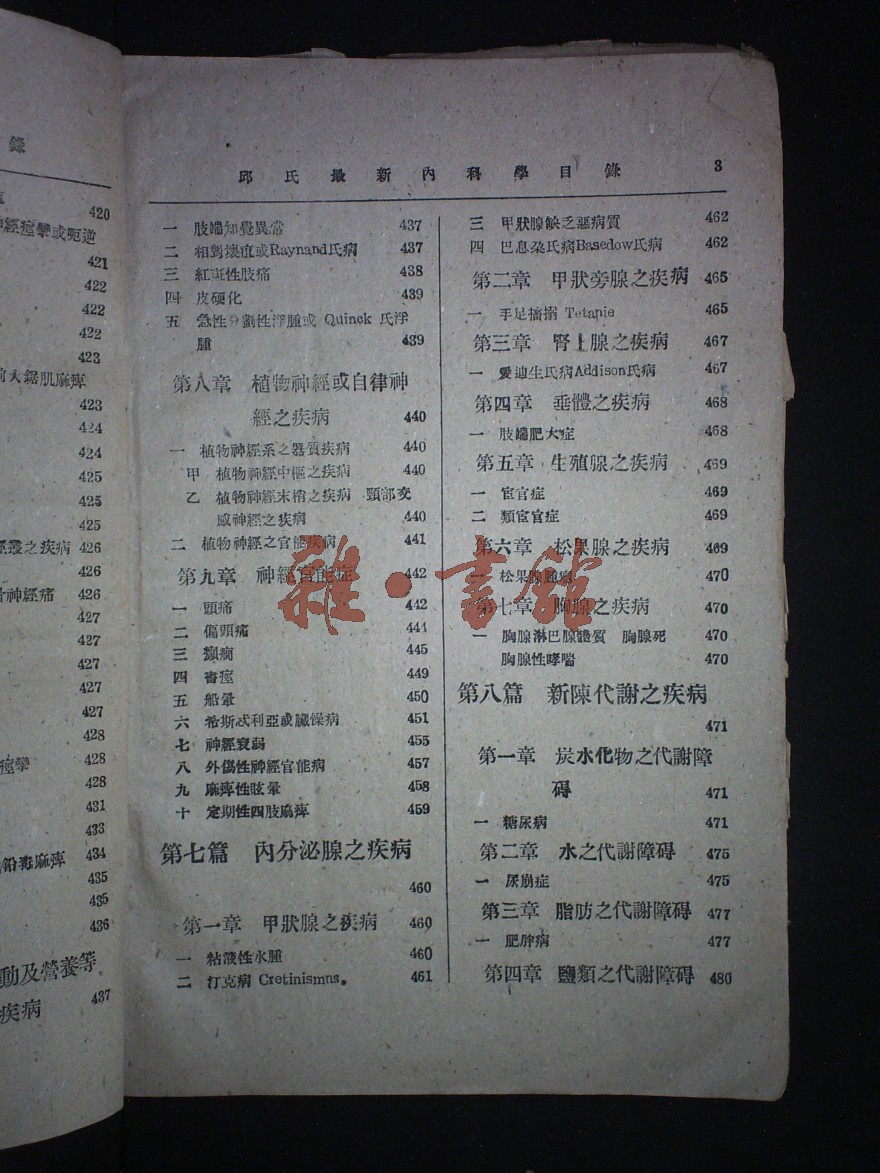 錄
420
經痙攣或呃逆
421
422
422
422
423
前大鋸肌麻痺
423
424
424
425
425
425
經叢之疾病 426
426
骨神經痛 426
427
427
427
427
427
428
痙攣 428
428
431
433
鉛毒麻痺 434
435
435
436
動及營養等
疾病 437
邱氏最新內科學目錄 3
一 肢端知覺異常 437
二 相對壞疽或Raynand氏病 437
三 紅斑性肢痛 438
四 皮硬化 439
五 急性分劃性浮腫或 Quinck 氏浮
腫 439
第八章 植物神經或自律神
經之疾病 440
一 植物神經系之器質疾病 440
甲 植物神經中樞之疾病 440
乙 植物神經末梢之疾病 頸部交
感神經之疾病 440
二 植物神經之官能疾病 441
第九章 神經官能症 442
一 頭痛 442
二 偏頭痛 444
三 癲癇 445
四 書痙 449
五 船暈 450
六 希斯忒利亞或臟懆病 451
七 神經衰弱 455
八 外傷性神經官能病 457
九 麻痺性眩暈 458
十 定期性四肢麻痺 459
第七篇 內分泌腺之疾病
460
第一章 甲狀腺之疾病 460
一 粘液性水腫 460
二 打克病 Cretinismns。 461
三 甲狀腺缺乏惡病質 462
四 巴息桑氏病Basedow氏病 462
第二章 甲狀旁腺之疾病 465
一 手足搐搦 Tetapie 465
第三章 腎上腺之疾病 467
一 愛迪生氏病Addison氏病 467
第四章 垂體之疾病 468
一 肢端肥大症 468
第五章 生殖腺之疾病 469
一 宦官症 469
二 類宦官症 469
第六章 松果腺之疾病 469
一 松果腺腫瘤 470
第七章 胸腺之疾病 470
一 胸腺淋巴腺體質 胸腺死 470
胸腺性哮喘 470
第八篇 新陳代謝之疾病
471
第一章 炭水化物之代謝障
碍 471
一 糖尿病 471
第二章 水之代謝障碍 475
一 尿崩症 475
第三章 脂肪之代謝障碍 477
一 肥胖病 477
第四章 鹽類之代謝障碍 480
雜·書館